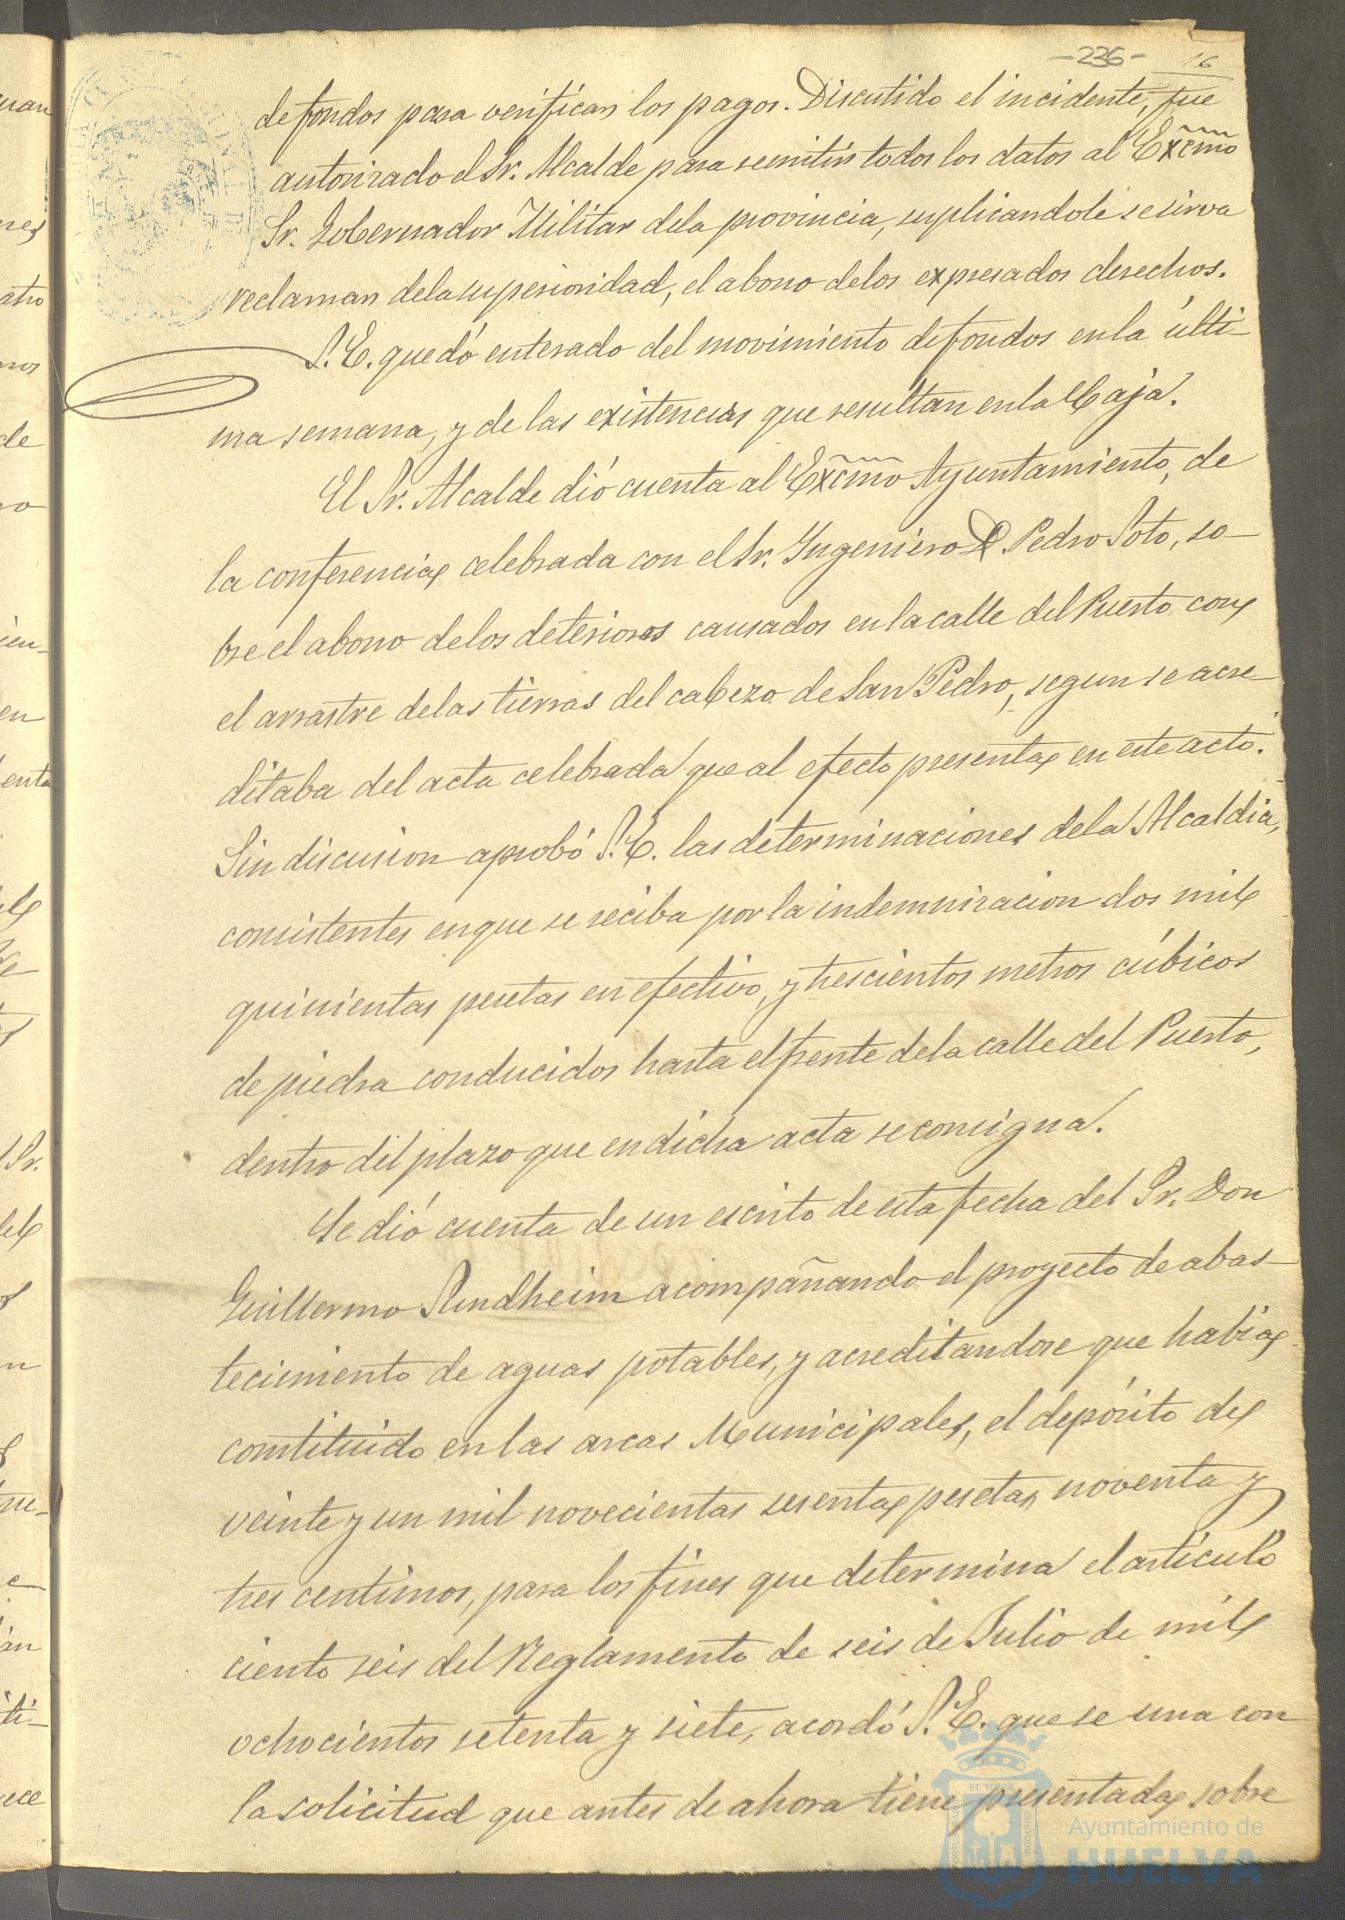 -236- 16
de fondos para verificar los pagos. Discutido el incidente, fue
autorizado el Sr. Alcalde para remitir todos los datos al Excmo
Sr. Gobernador Militar de la provincia, suplicandole se sirva
reclamar de la superioridad, el abono de los expresados derechos.
S. E. quedó enterado del movimiento de fondos en la últi-
ma semana, y de las existencias que resultan en la Caja.
El Sr. Alcalde dió cuenta al Excmo Ayuntamiento, de
la conferencia celebrada con el Sr. Ingeniero D. Pedro Soto, so-
bre el abono de los deterioros causados en la calle del Puerto con
el arrastre de las tierras del cabezo de San Pedro, segun se acre-
ditaba del acta celebrada que al efecto presenta en este acto.
Sin discusion aprobó S. E. las determinaciones de la Alcaldia,
consistentes en que se reciba por la indemnizacion dos mil
quinientas pesetas en efectivo, y trescientos metros cúbicos
de piedra conducidos hasta el frente de la calle del Puerto,
dentro del plazo que en dicha acta se consigna.
Se dió cuenta de un escrito de esta fecha del Sr. Don
Guillermo Sundheim acompañando el proyecto de abas-
tecimiento de aguas potables, y acreditandose que habia
constituido en las arcas Municipales, el depósito de
veinte y un mil novecientas sesenta pesetas noventa y
tres centimos, para los fines que determina el artículo
ciento seis del Reglamento de seis de Julio de mil
ochocientos setenta y siete, acordó S. E. que se una con
la solicitud que antes de ahora tiene presentada sobre
Ayuntamiento de
HUELVA